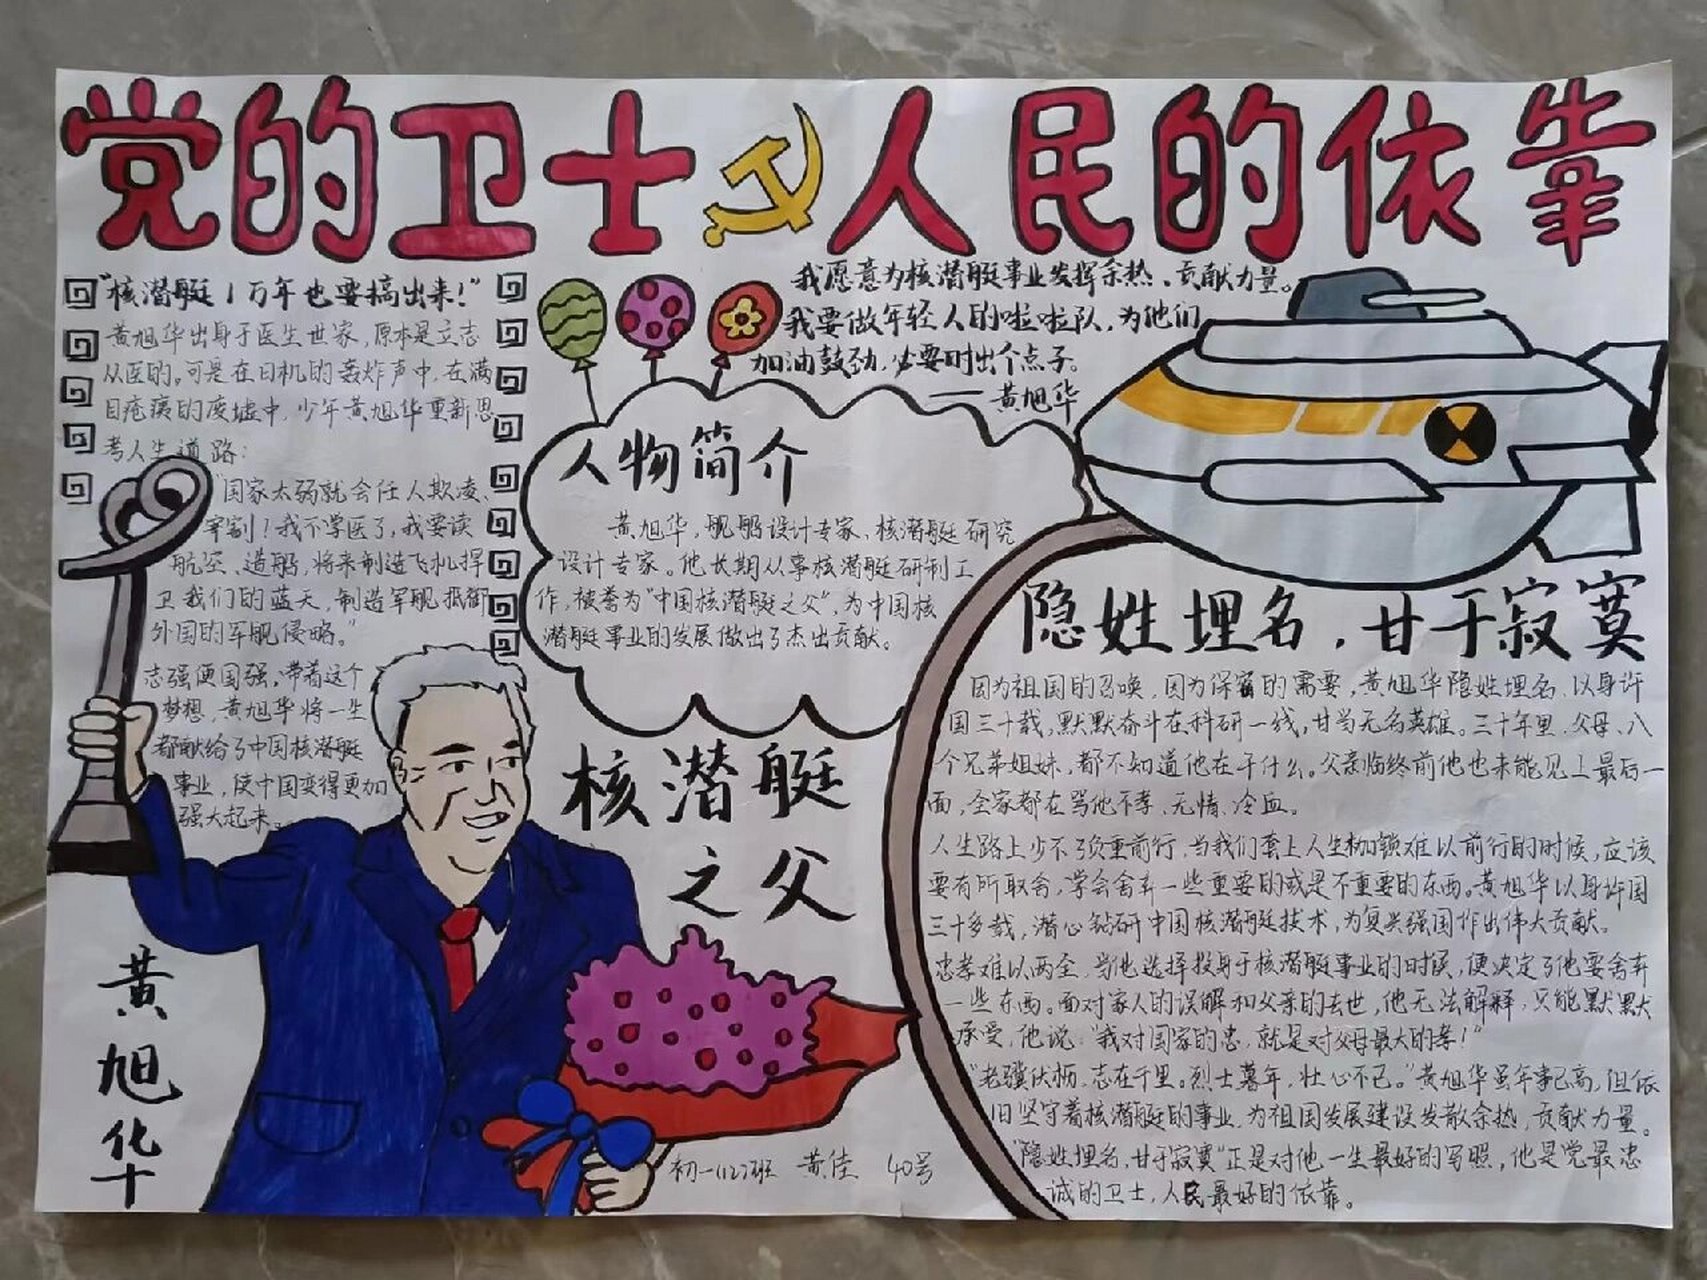 党的卫士 人民的依靠
"核潜艇1万年也要搞出来!"
黄旭华出身于医生世家,原本是立志
从医的。可是在日机的轰炸声中,在满
目疮痍的废墟中,少年黄旭华重新思
考人生道路:
"国家太弱就会任人欺凌、
宰割!我不学医了,我要读
航空、造船,将来制造飞机捍
卫我们的蓝天,制造军舰抵御
外国的军舰侵略。"
志强便国强,带着这个
梦想,黄旭华将一生
都献给了中国核潜艇
事业,使中国变得更加
强大起来。
黄旭华
我愿意为核潜艇事业发挥余热、贡献力量。
我要做年轻人的啦啦队,为他们
加油鼓劲,必要时出个点子。
——黄旭华
人物简介
黄旭华,舰船设计专家、核潜艇研究
设计专家。他长期从事核潜艇研制工
作,被誉为"中国核潜艇之父",为中国核
潜艇事业的发展做出了杰出贡献。
核潜艇
之父
隐姓埋名,甘于寂寞
因为祖国的召唤,因为保密的需要,黄旭华隐姓埋名,以身许
国三十载,默默奋斗在科研一线,甘当无名英雄。三十年里,父母、八
个兄弟姐妹,都不知道他在干什么。父亲临终前他也未能见上最后一
面,全家都在骂他不孝、无情、冷血。
人生路上少不了负重前行,当我们套上人生枷锁难以前行的时候,应该
要有所取舍,学会舍弃一些重要的或是不重要的东西。黄旭华以身许国
三十多载,潜心钻研中国核潜艇技术,为复兴强国作出伟大贡献。
忠孝难以两全,当他选择投身于核潜艇事业的时候,便决定了他要舍弃
一些东西。面对家人的误解和父亲的去世,他无法解释,只能默默
承受,他说:"我对国家的忠,就是对父母最大的孝!"
"老骥伏枥,志在千里。烈士暮年,壮心不已。"黄旭华虽年事已高,但依
旧坚守着核潜艇的事业,为祖国发展建设发散余热,贡献力量。
"隐姓埋名,甘于寂寞"正是对他一生最好的写照,他是党最忠
诚的卫士,人民最好的依靠。
初一(12)班 黄佳 40号